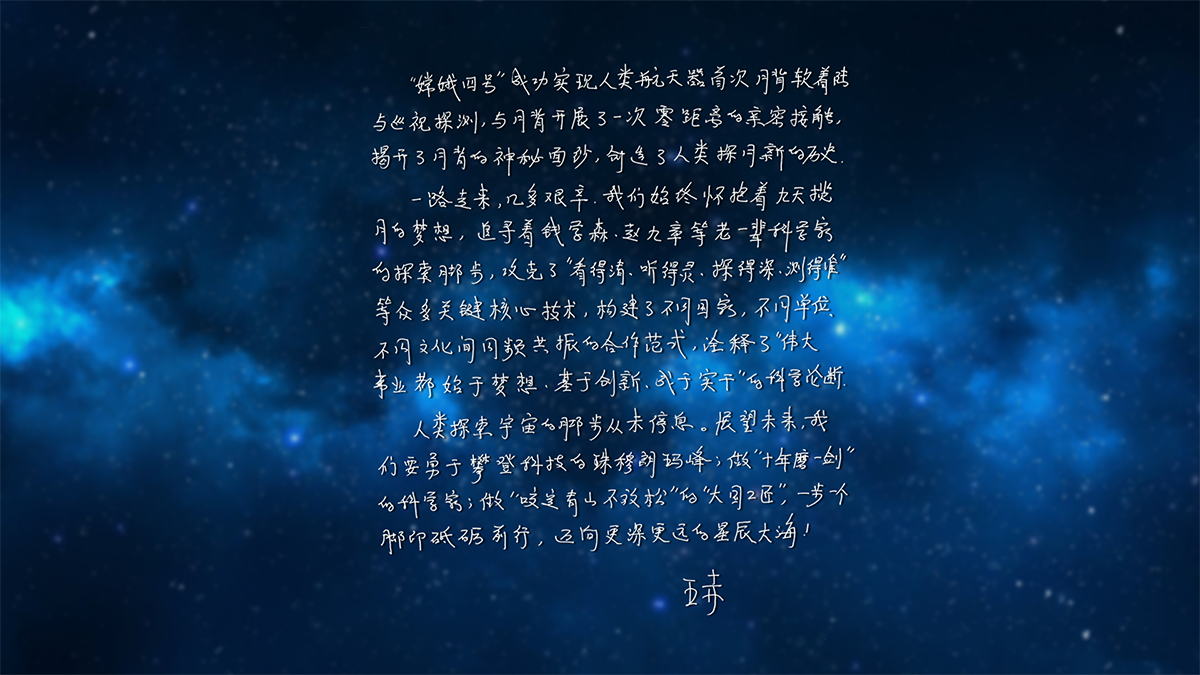 “嫦娥四号”成功实现人类航天器首次月背软着陆
与巡视探测，与月背开展了一次零距离的亲密接触，
揭开了月背的神秘面纱，创造了人类探月新的历史.
一路走来，几多艰辛.我们始终怀抱着九天揽
月的梦想，追寻着钱学森、赵九章等老一辈科学家
的探索脚步，攻克了“看得清、听得灵、探得深、测得准”
等众多关键核心技术，构建了不同国家，不同单位、
不同文化间同频共振的合作范式，诠释了“伟大
事业都始于梦想、基于创新、成于实干”的科学论断.
人类探索宇宙的脚步从未停息。展望未来，我
们要勇于攀登科技的珠穆朗玛峰；做“十年磨一剑”
的科学家；做“咬定青山不放松”的“大国工匠”，一步一个
脚印砥砺前行，迈向更深更远的星辰大海！
王赤